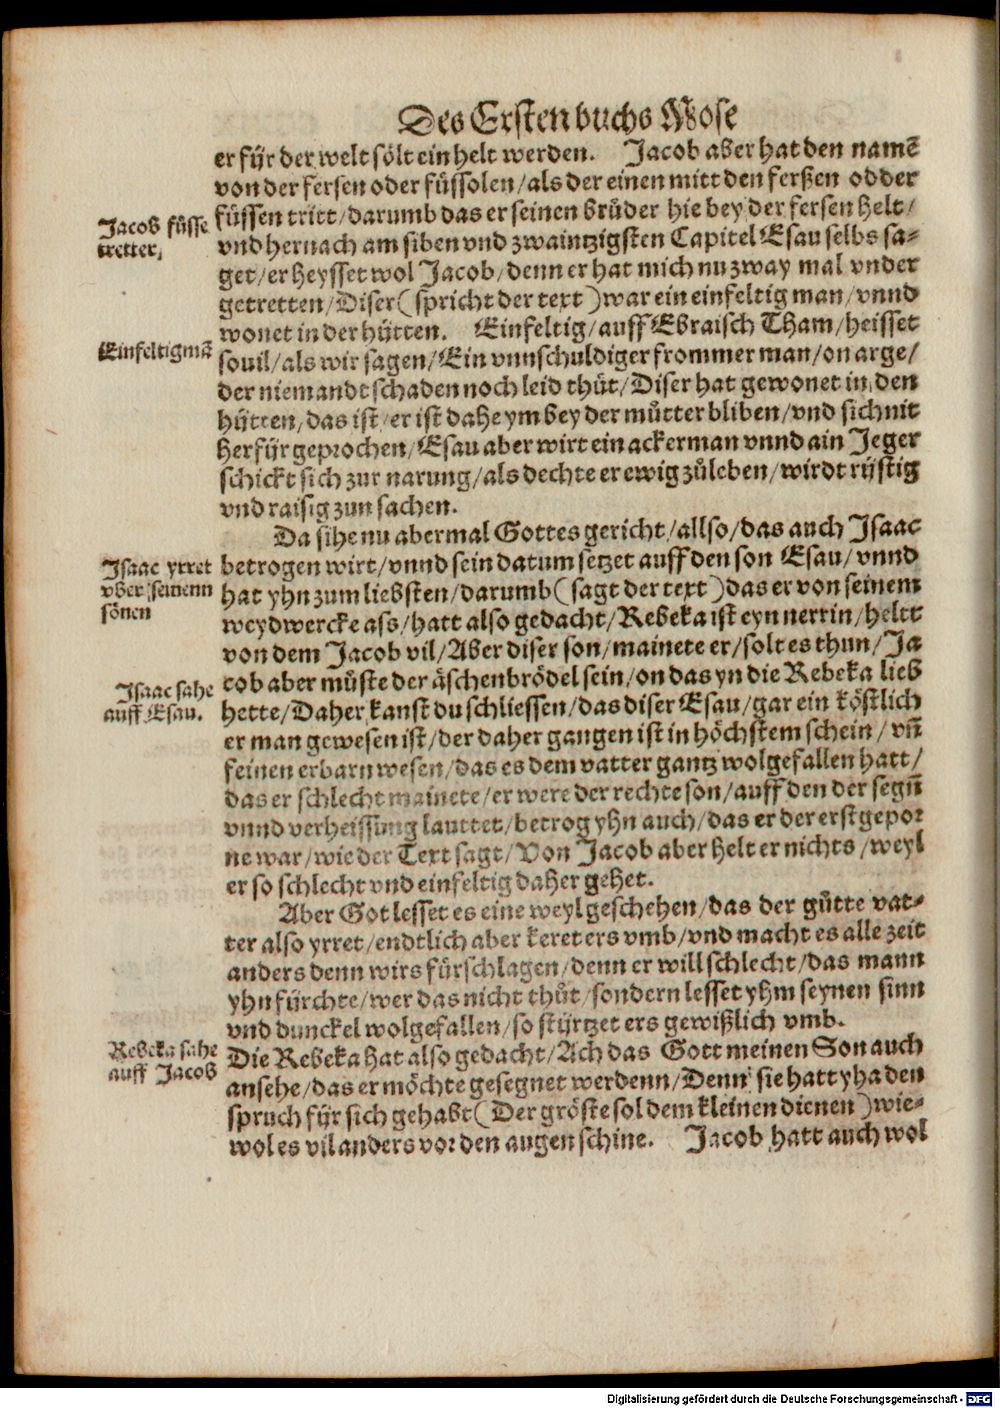 Des Ersten buchs Mose
er für der welt sölt ein helt werden. Jacob aber hat den namẽ
von der fersen oder füssolen/als der einen mitt den ferßen odder
füssen tritt/darumb das er seinen brůder hie bey der fersen helt/
vnd hernach am siben vnd zwaintzigsten Capitel Esau selbs sa-
get/er heysset wol Jacob/denn er hat mich nu zway mal vnder
getretten/Diser (spricht der text) war ein einfeltig man/vnnd
wonet in der hütten. Einfeltig/auff Ebraisch Tham/heisset
souil/als wir sagen/Ein vnnschuldiger frommer man/on arge/
der niemandt schaden noch leid thůt/Diser hat gewonet in den
hütten/das ist/er ist daheym bey der můtter bliben/vnd sich nit
herfür geprochen/Esau aber wirt ein ackerman vnnd ain Jeger
schickt sich zur narung/als dechte er ewig zůleben/wirdt rüstig
vnd raisig zun sachen.
Da sihe nu abermal Gottes gericht/allso/das auch Isaac
betrogen wirt/vnnd sein datum setzet auff den son Esau/vnnd
hat yhn zum liebsten/darumb (sagt der text) das er von seinem
weydwercke ass/hatt also gedacht/Rebeka ist eyn nerrin/heltt
von dem Jacob vil/Aber diser son/mainete er/solt es thun/Ja
cob aber můste der äschenbrödel sein/on das yn die Rebeka lieb
hette/Daher kanst du schliessen/das diser Esau/gar ein köstlich
er man gewesen ist/der daher gangen ist in höchstem schein/vñ
feinen erbarn wesen/das es dem vatter gantz wolgefallen hatt/
das er schlecht mainete/er were der rechte son/auff den der segñ
vnnd verheissung lauttet/betrog yhn auch/das er der erstgepor
ne war/wie der Text sagt/Von Jacob aber helt er nichts/weyl
er so schlecht vnd einfeltig daher gehet.
Aber Got lesset es eine weyl geschehen/das der gůtte vat-
ter also yrret/endtlich aber keret ers vmb/vnd macht es alle zeit
anders denn wirs fürschlagen/denn er will schlecht/das mann
yhn fürchte/wer das nicht thůt/sondern lesset yhm seynen sinn
vnd dunckel wolgefallen/so stürtzet ers gewißlich vmb.
Die Rebeka hat also gedacht/Ach das Gott meinen Son auch
ansehe/das er möchte gesegnet werdenn/Denn sie hatt yha den
spruch für sich gehabt (Der gröste sol dem kleinen dienen) wie-
wol es vil anders vor den augen schine. Jacob hatt auch wol
Jacob füsse
tretter,
Einfeltig mã
Isaac yrret
vber seinenn
sönen
Isaac sahe
auff Esau.
Rebeka sahe
auff Jacob
Digitalisierung gefördert durch die Deutsche Forschungsgemeinschaft - DFG